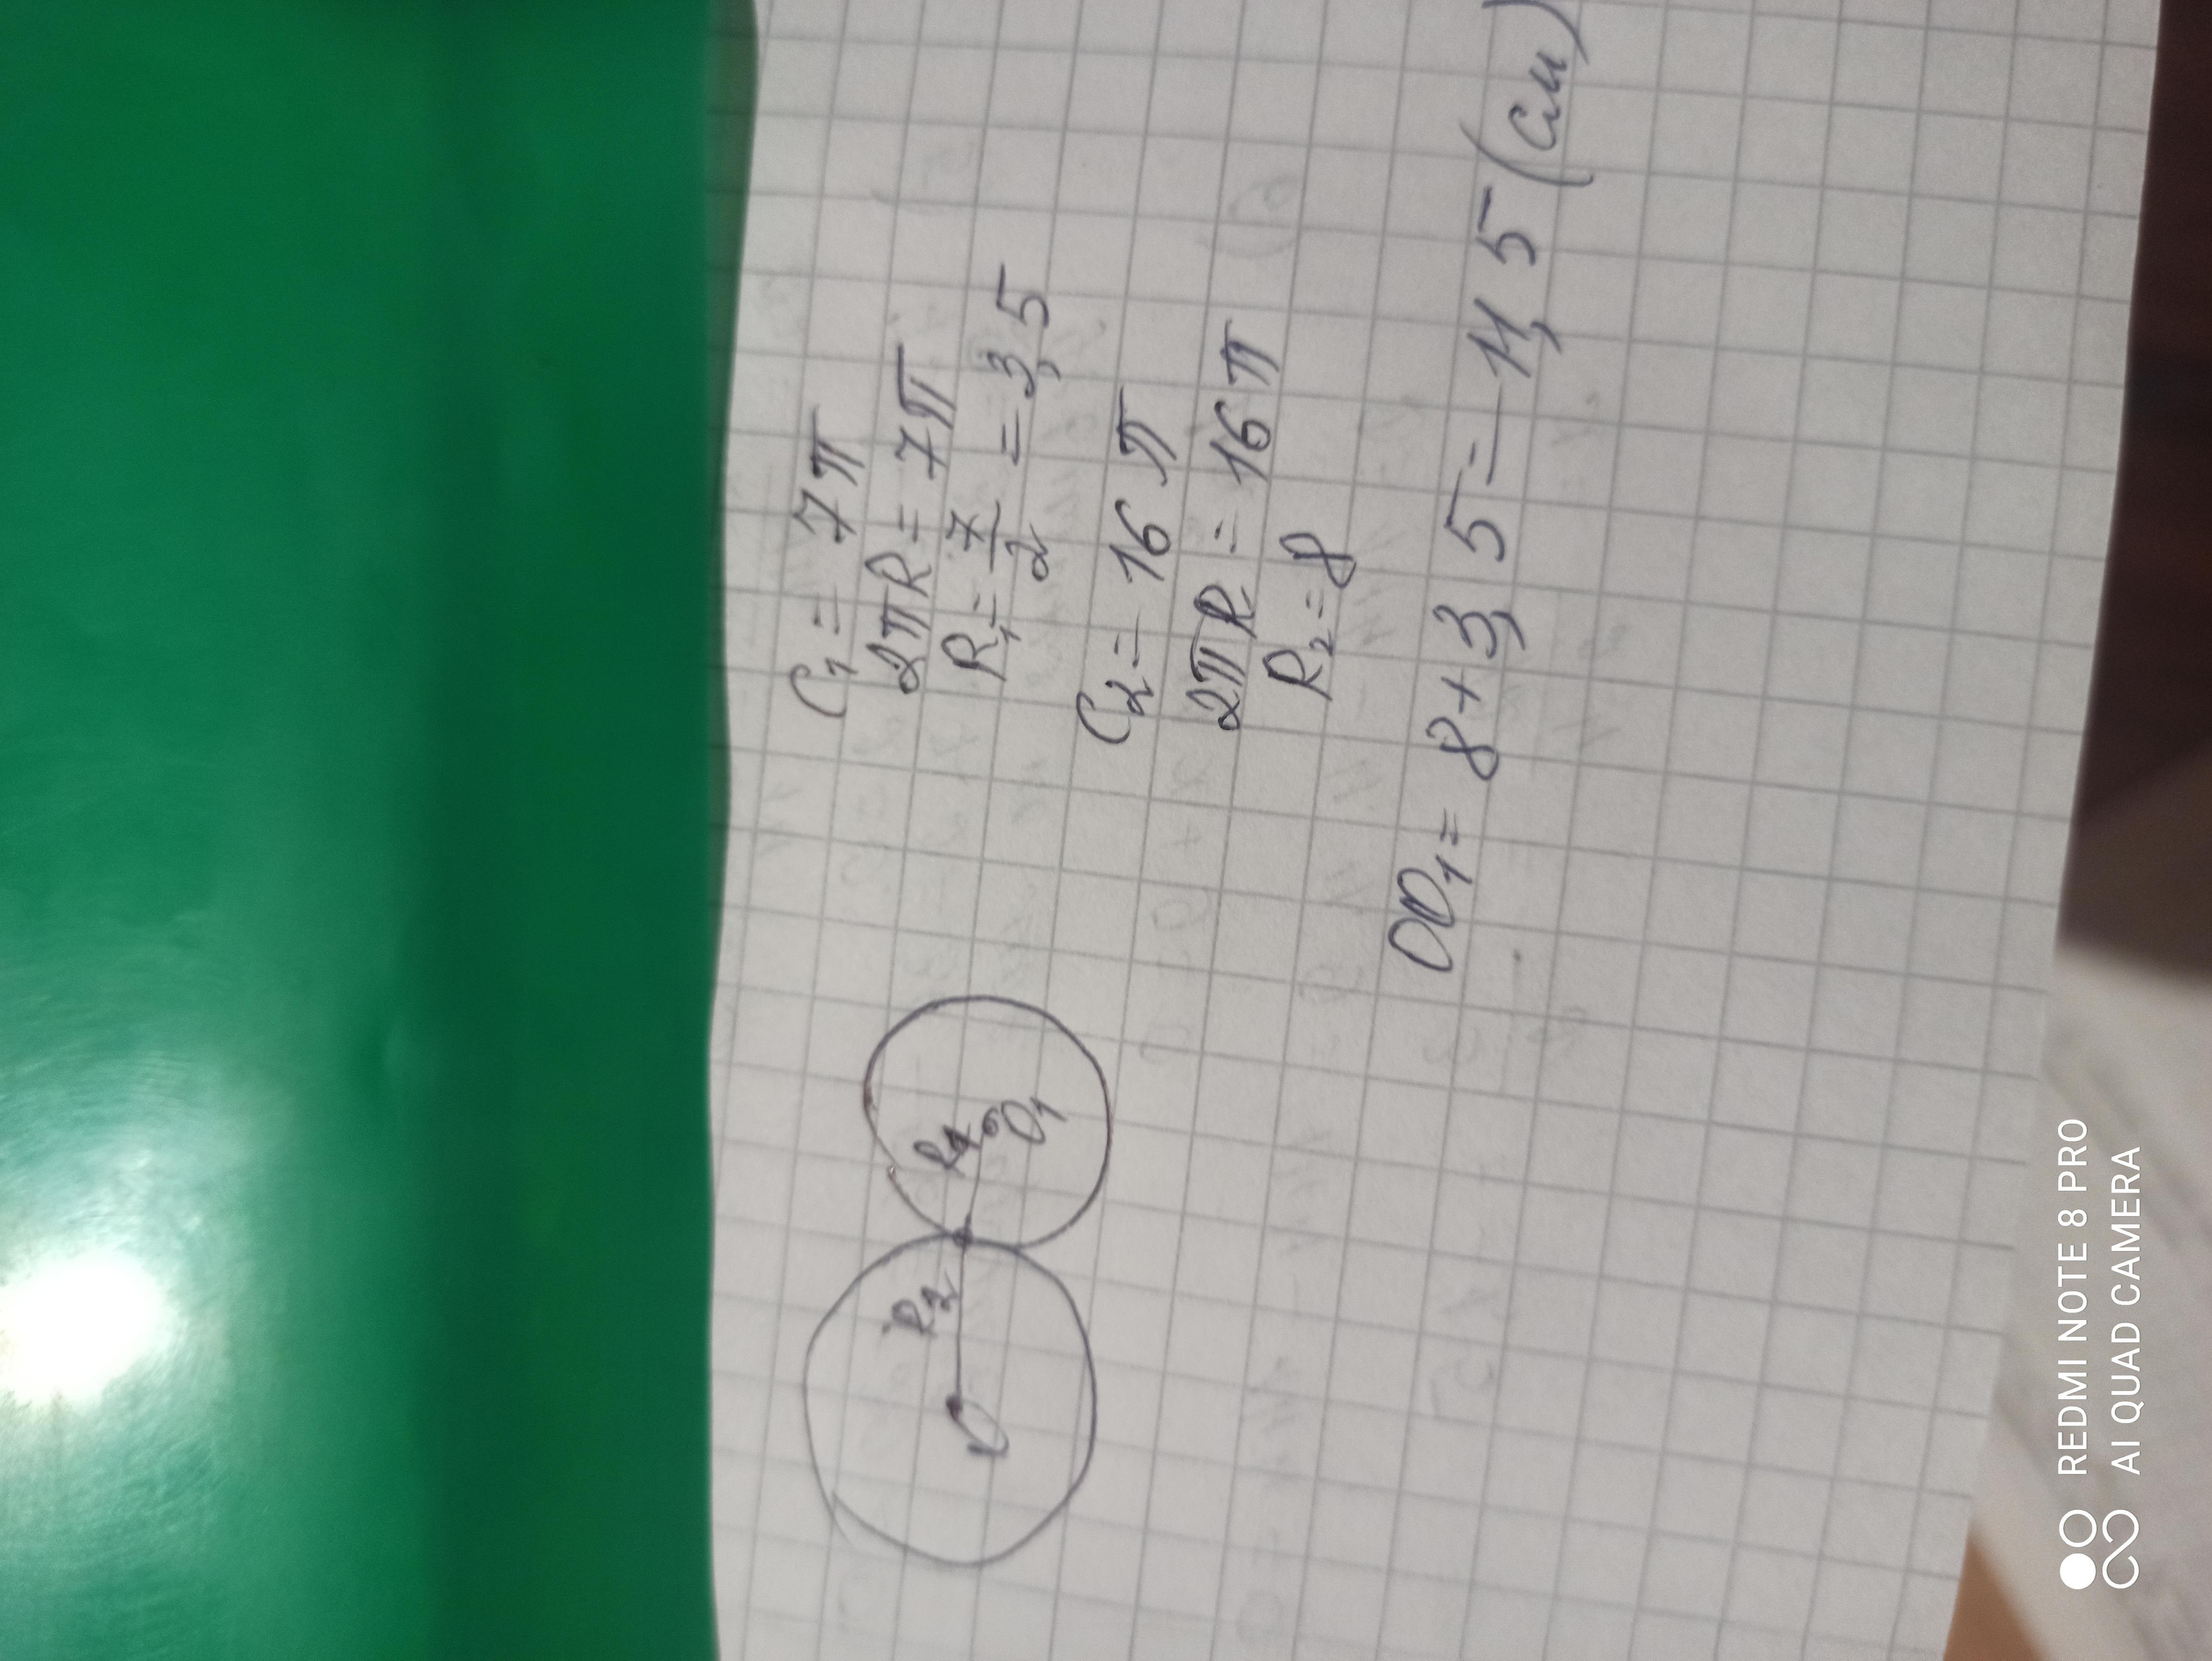 C₁ = 7π
2πR = 7π
R₁ = 7/2 = 3,5
C₂ = 16π
2πR = 16π
R₂ = 8
R₂
R₁
O
O₁
OO₁ = 8 + 3,5 = 11,5 (см)
REDMI NOTE 8 PRO
AI QUAD CAMERA